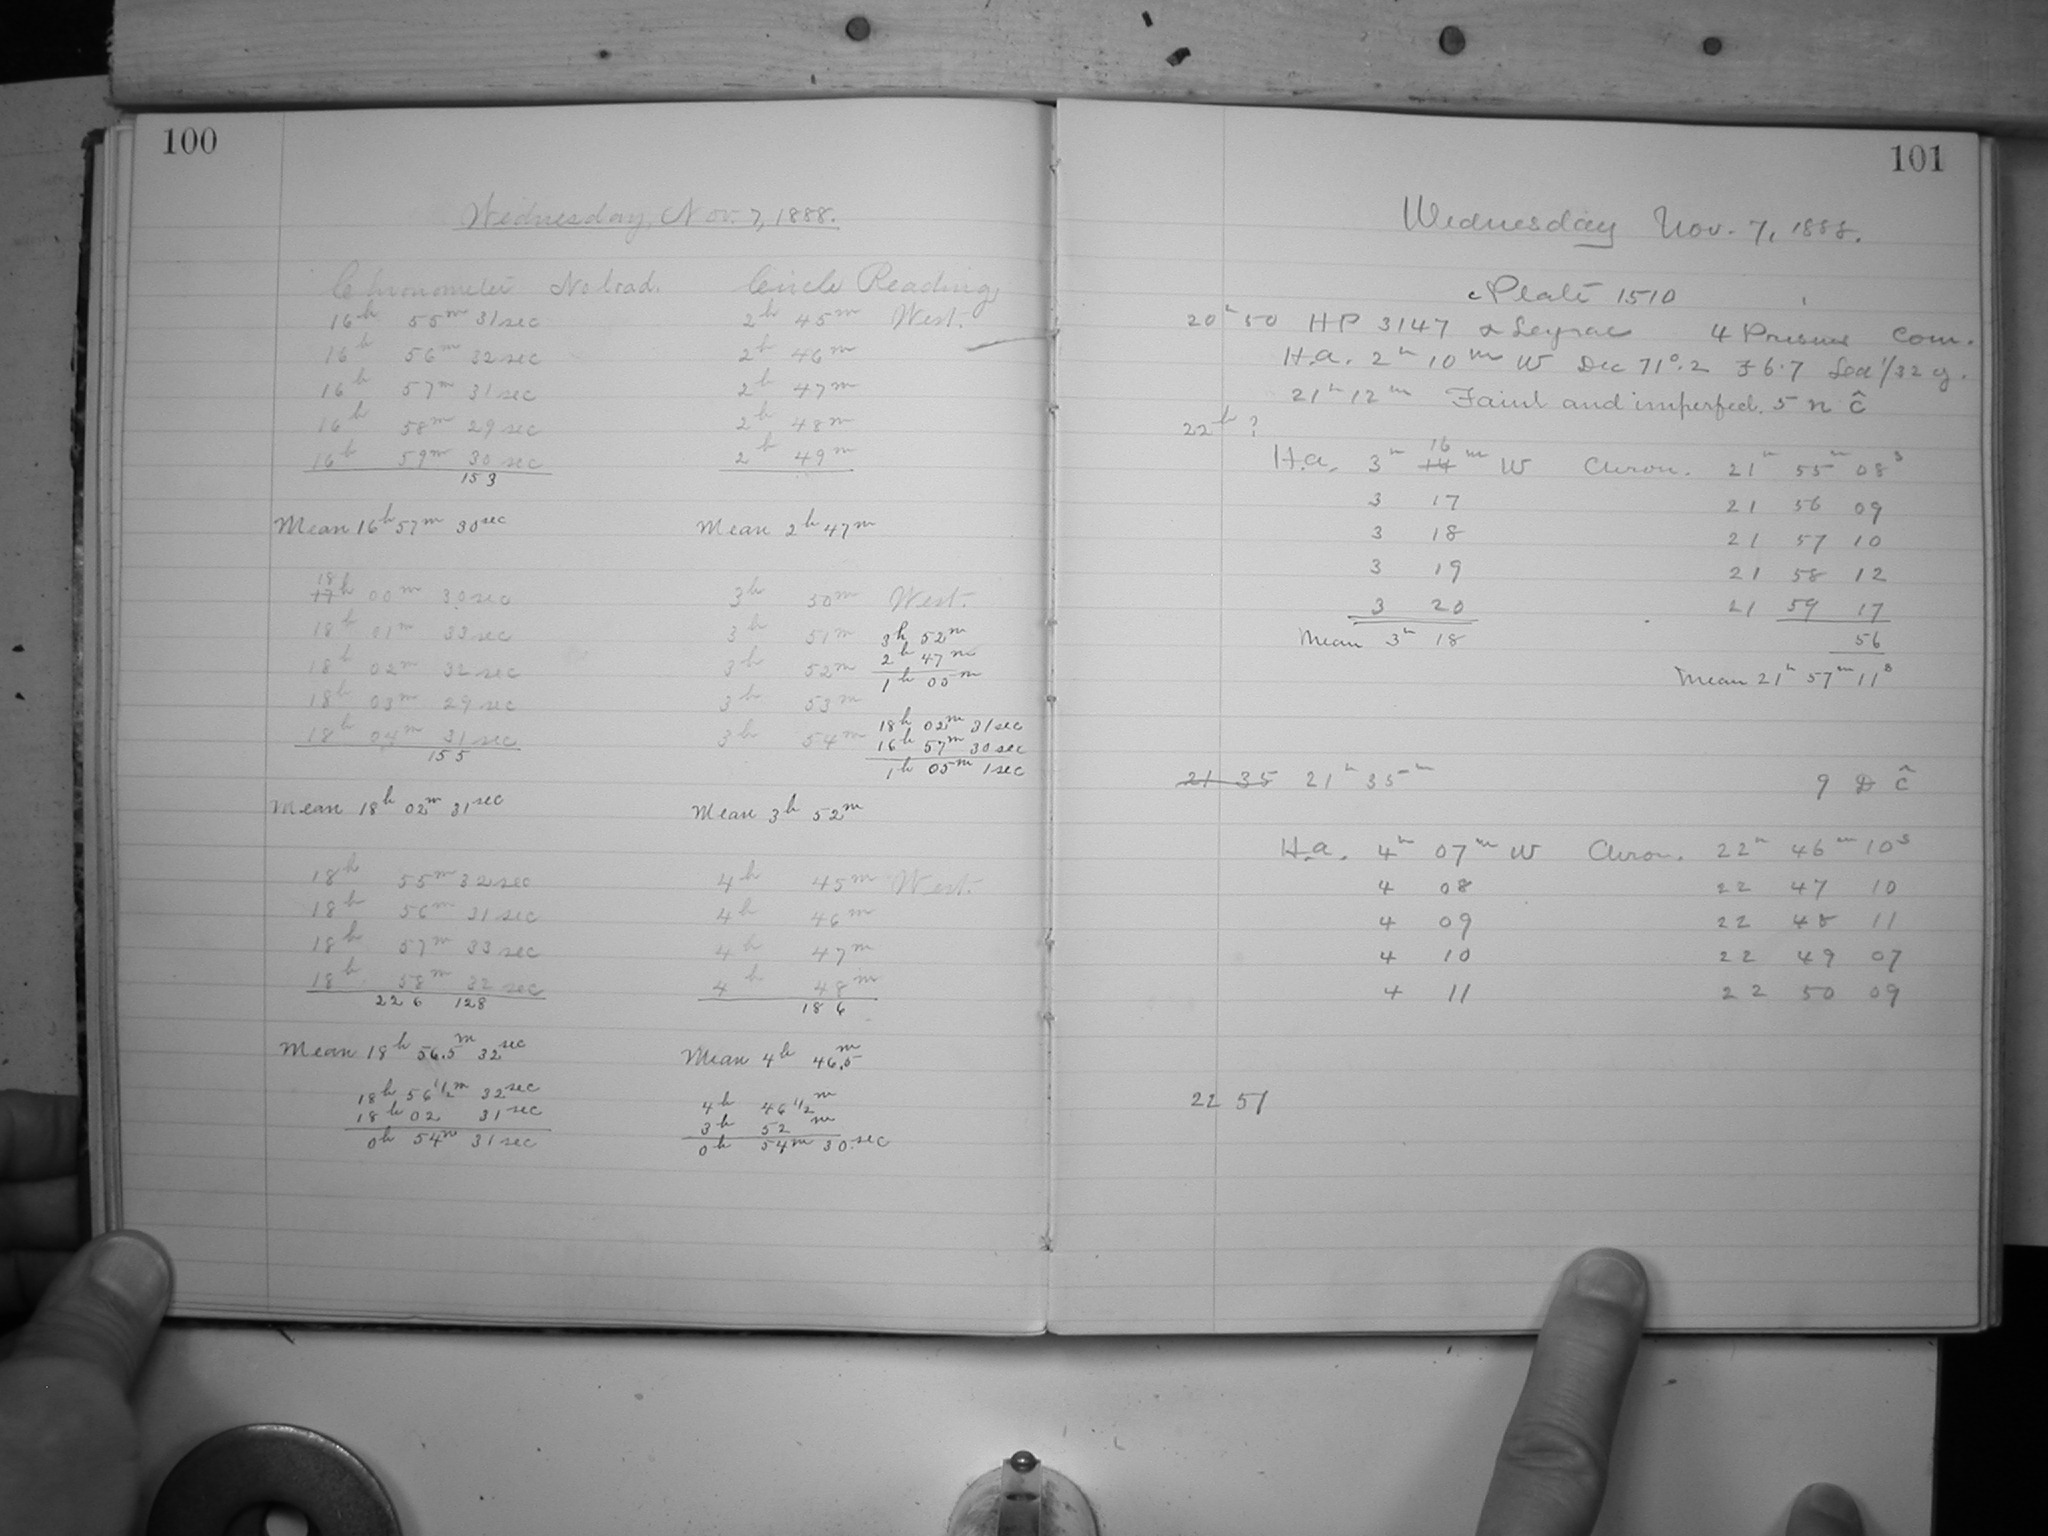 100
Wednesday, Nov. 7, 1888.
Chronometer No load. Circle Reading,
16h 55m 31sec 2h 45m West.
16h 56m 32sec 2h 46m
16h 57m 31sec 2h 47m
16h 58m 29sec 2h 48m
16h 59m 30sec 2h 49m
153
Mean 16h 57m 30sec Mean 2h 47m
18
17h 00m 30sec 3h 50m West.
18h 01m 33sec 3h 51m 3h 52m
2h 47m
18h 02m 32sec 3h 52m 1h 05m
18h 03m 29sec 3h 53m
18h 02m 31sec
18h 04m 31sec 3h 54m 16h 57m 30sec
155 1h 05m 1sec
Mean 18h 02m 31sec Mean 3h 52m
18h 55m 32sec 4h 45m West.
18h 56m 31sec 4h 46m
18h 57m 33sec 4h 47m
18h 58m 32sec 4h 48m
226 128 186
Mean 18h 56.5m 32sec Mean 4h 46.5m
18h 56 1/2m 32sec 4h 46 1/2m
18h 02 31sec 3h 52m
0h 54m 31sec 0h 54m 30.sec
101
Wednesday Nov. 7, 1888.
Plate 1510
20h 50 HP 3147 4 Prisms Com.
H.a. 2h 10m W Dec 71°.2 F 6.7 Sea 1/32 y.
21h 12m Faint and imperfect. 5 n ĉ
22h ?
16
H.a. 3h 14m W Chron. 21h 55m 08s
3 17 21 56 09
3 18 21 57 10
3 19 21 58 12
3 20 21 59 17
Mean 3h 18 56
Mean 21h 57m 11s
21 35 21h 35m 9 D ĉ
H.a. 4h 07m W Chron. 22h 46m 10s
4 08 22 47 10
4 09 22 48 11
4 10 22 49 07
4 11 22 50 09
22 51